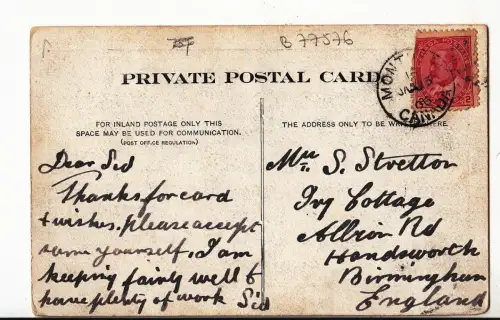 B 77576
PRIVATE POSTAL CARD
MONT
CANADA
FOR INLAND POSTAGE ONLY THIS
SPACE MAY BE USED FOR COMMUNICATION.
(POST OFFICE REGULATION)
Dear Sid
Thanks for card
+ wishes. please accept
same yourself. I am
keeping fairly well &
have plenty of work Sid
THE ADDRESS ONLY TO BE HERE.
S. Stretton
Ivy Cottage
Albion Rd
Handsworth
Birmingham
England